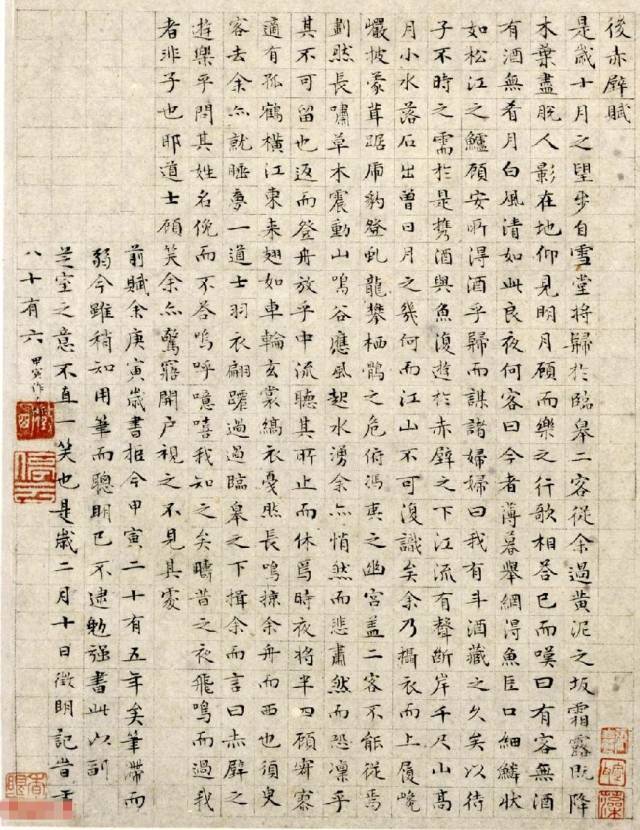 後赤壁賦
是歲十月之望步自雪堂將歸於臨皋二客從余過黃泥之坂霜露既降
木葉盡脫人影在地仰見明月顧而樂之行歌相答已而嘆曰有客無酒
有酒無肴月白風清如此良夜何客曰今者薄暮舉網得魚巨口細鱗狀
如松江之鱸顧安所得酒乎歸而謀諸婦婦曰我有斗酒藏之久矣以待
子不時之需於是攜酒與魚復遊於赤壁之下江流有聲斷岸千尺山高
月小水落石出曾日月之幾何而江山不可復識矣余乃攝衣而上履巉
巖披蒙茸踞虎豹登虬龍攀栖鶻之危俯馮夷之幽宮蓋二客不能從焉
劃然長嘯草木震動山鳴谷應風起水湧余亦悄然而悲肅然而恐凜乎
其不可留也返而登舟放乎中流聽其所止而休焉時夜將半四顧寂寥
適有孤鶴橫江東來翅如車輪玄裳縞衣戛然長鳴掠余舟而西也須臾
客去余亦就睡夢一道士羽衣翩躚過過臨皋之下揖余而言曰赤壁之
遊樂乎問其姓名俛而不答嗚呼噫嘻我知之矣疇昔之夜飛鳴而過我
者非子也耶道士顧笑余亦驚寤開戶視之不見其處
前賦余庚寅歲書抵今甲寅二十有五年矣筆滯而
弱今雖稍知用筆而聰明已不逮勉強書此以副
芝室之意不直一笑也是歲二月十日徵明記時年
八十有六 甲寅作